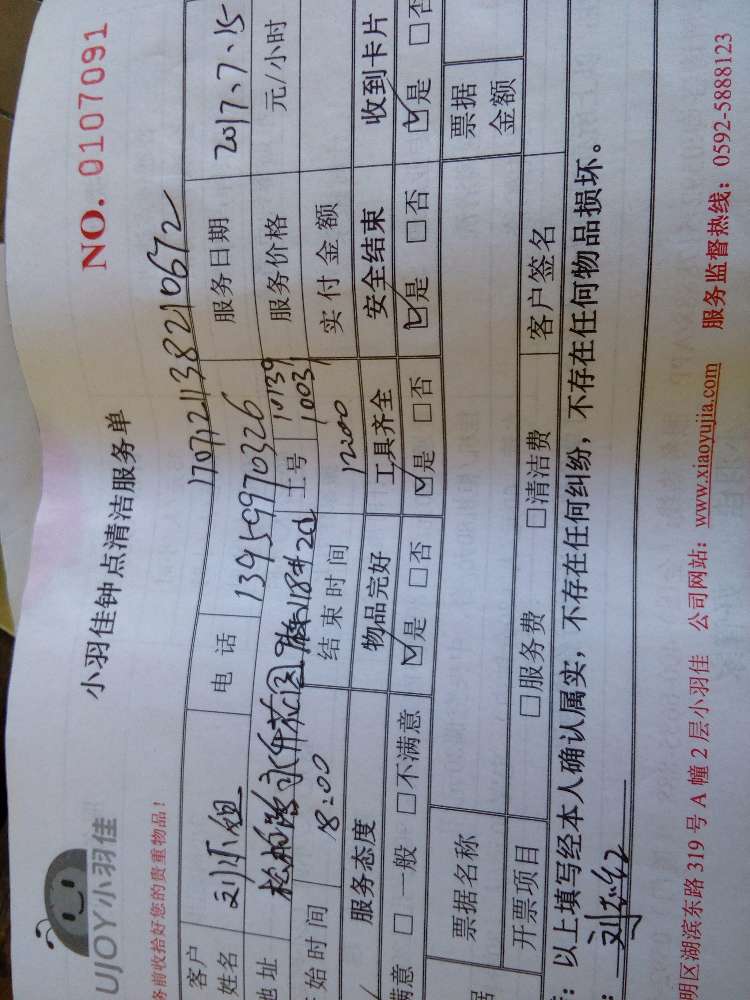 UJOY小羽佳
小羽佳钟点清洁服务单
NO. 0107091
务前收拾好您的贵重物品!
1707121138210672
客户姓名 刘小姐 电话 13959970326 服务日期 2017、7、15
地址 工号 10139 10031 服务价格 元/小时
始时间 8:00 结束时间 12:00 实付金额
服务态度 物品完好 工具齐全 安全结束 收到卡片
满意 □ 一般 □不满意 ☑是 □否 ☑是 □否 ☑是 □否 ☑是 □否
票据名称 票据金额
开票项目 □服务费 □清洁费 客户签名
: 以上填写经本人确认属实，不存在任何纠纷，不存在任何物品损坏。
明区湖滨东路 319 号 A 幢 2 层小羽佳 公司网站: www.xiaoyujia.com 服务监督热线: 0592-5888123